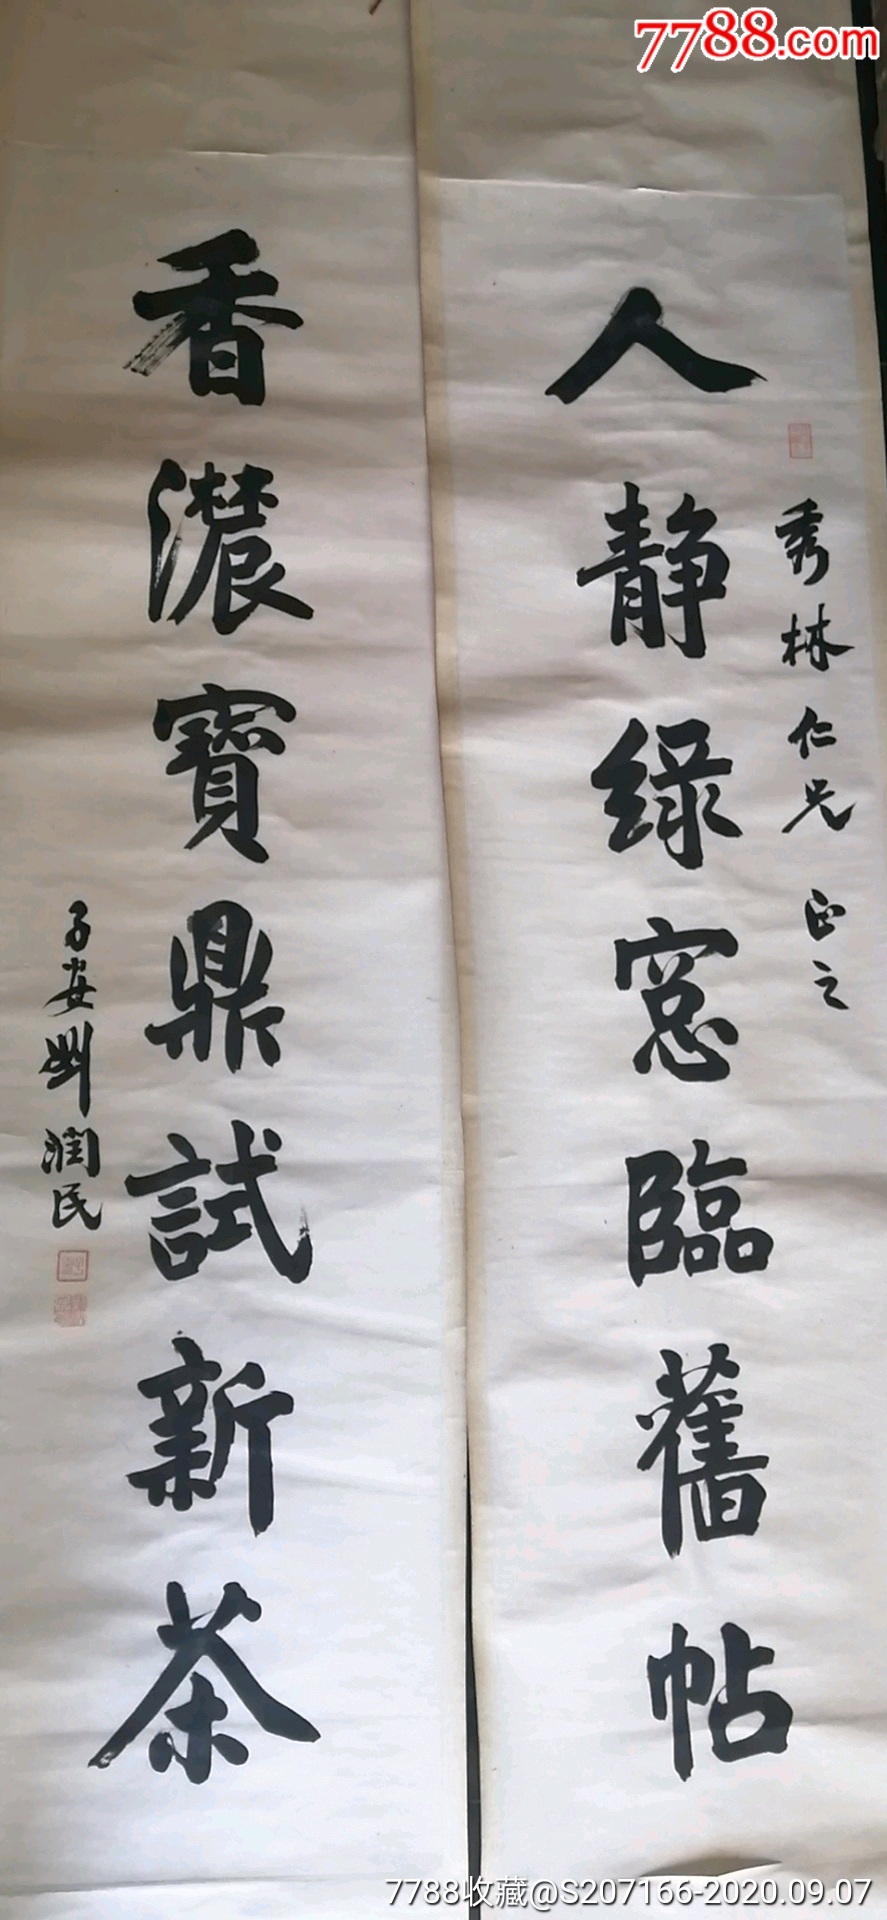 7788.com
人静绿窓臨舊帖
秀林仁兄正之
香濃寶鼎試新茶
子安劉潤民
7788收藏@S207166-2020.09.07